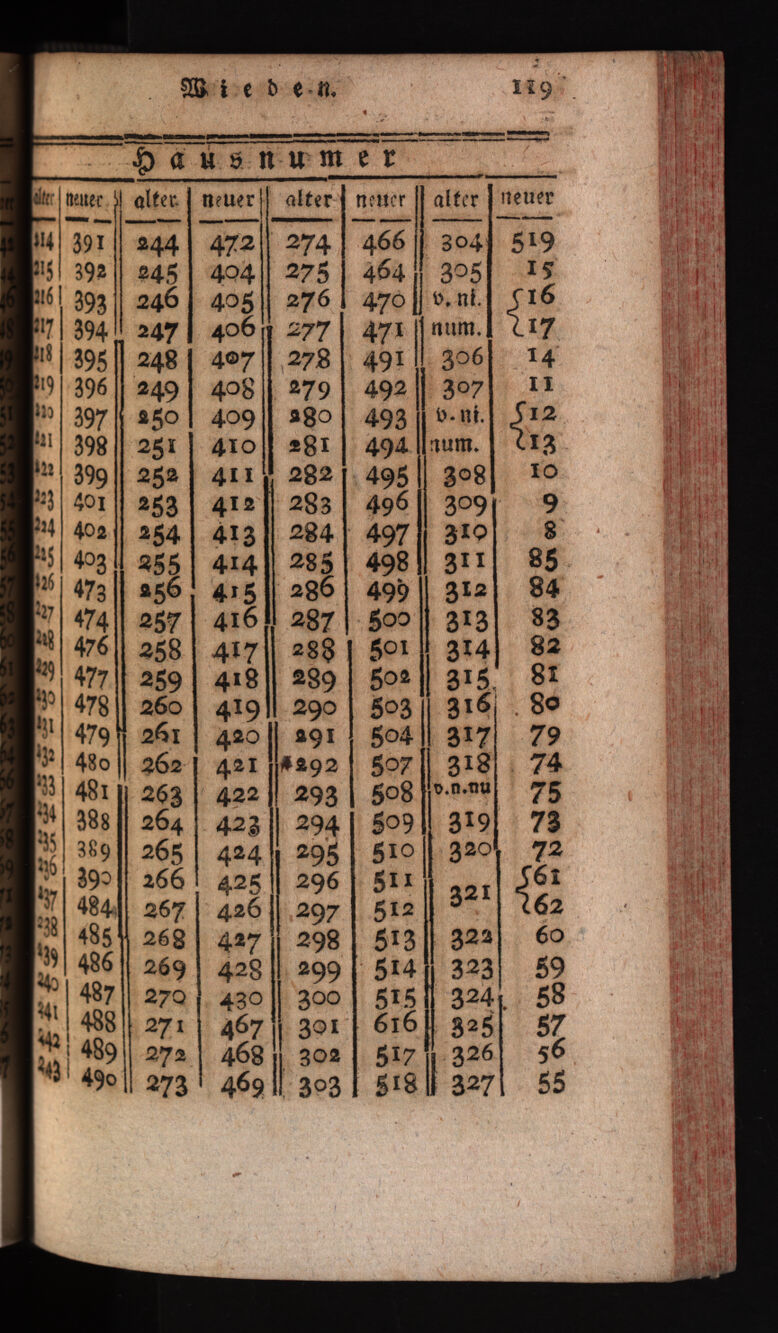 Wieden. 119
Hausnumer
alter neuer alter neuer alter neuer alter neuer
214 391 244 472 274 466 304 519
215 392 245 404 275 464 305 15
216 393 246 405 276 470 v. ni. {16
217 394 247 406 277 471 num. {17
218 395 248 407 278 491 306 14
219 396 249 408 279 492 307 11
220 397 250 409 280 493 v. ni. {12
221 398 251 410 281 494 num. {13
222 399 252 411 282 495 308 10
223 401 253 412 283 496 309 9
224 402 254 413 284 497 310 8
225 403 255 414 285 498 311 85
226 473 256 415 286 499 312 84
227 474 257 416 287 500 313 83
228 476 258 417 288 501 314 82
229 477 259 418 289 502 315 81
230 478 260 419 290 503 316 80
231 479 261 420 291 504 317 79
232 480 262 421 *292 507 318 74
233 481 263 422 293 508 v.n.nu 75
234 388 264 423 294 509 319 73
235 389 265 424 295 510 320 72
236 390 266 425 296 511 321 {61
237 484 267 426 297 512 {62
238 485 268 427 298 513 322 60
239 486 269 428 299 514 323 59
240 487 270 430 300 515 324 58
241 488 271 467 301 616 325 57
242 489 272 468 302 517 326 56
243 490 273 469 303 518 327 55